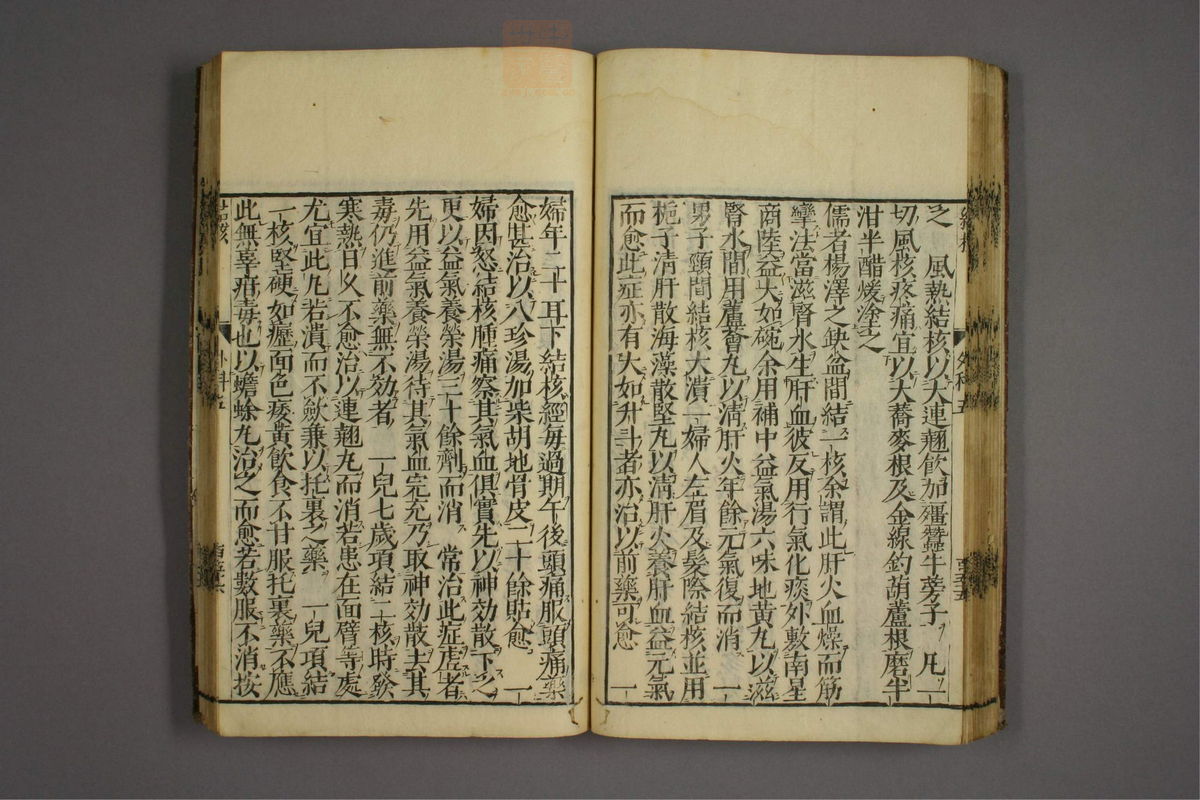 之　風熱結核以大連翹飲加殭蠶牛蒡子　凡一
切風核疼痛宜以大蕎麥根及金線釣葫蘆根磨半
泔半醋煖塗之
儒者楊澤之缺盆間結一核余謂此肝火血燥而筋
攣法當滋腎水生肝血彼反用行氣化痰外敷南星
商陸益大如碗余用補中益氣湯六味地黃丸以滋
腎水間用蘆薈丸以清肝火年餘元氣復而消　一
男子頸間結核大潰一婦人左眉及髮際結核並用
梔子清肝散海藻散堅丸以清肝火養肝血益元氣
而愈此症亦有大如升斗者亦治以前藥可愈　一
婦年二十耳下結核經每過期午後頭痛服頭痛藥
愈甚治以八珍湯加柴胡地骨皮二十餘貼愈　一
婦因怒結核腫痛察其氣血俱實先以神効散下之
更以益氣養榮湯三十餘劑而消　常治此症虛者
先用益氣養榮湯待其氣血完充乃取神効散去其
毒仍進前藥無不効者　一兒七歲項結二核時發
寒熱日久不愈治以連翹丸而消若患在面臂等處
尤宜此凡若潰而不歛兼以托裏之藥　一兒項結
一核堅硬如癧面色痿黃飲食不甘服托裏藥不應
此無辜疳毒也以蟾蜍丸治之而愈若數服不消按
結核
外科五